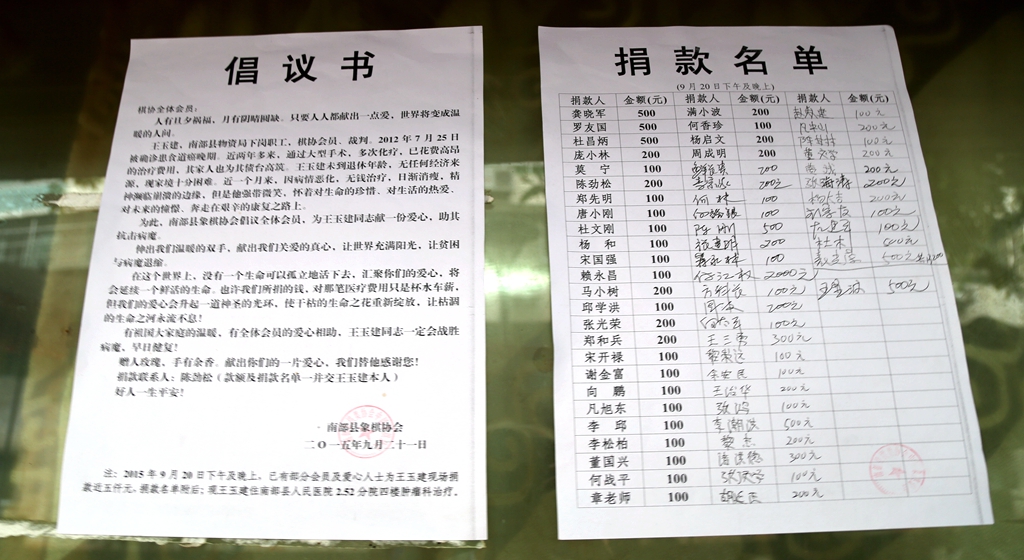 倡议书
棋协全体会员：
人有旦夕祸福，月有阴晴圆缺。只要人人都献出一点爱，世界将变成温
暖的人间。
王玉建，南部县物资局下岗职工，棋协会员、裁判。2012年7月25日
被确诊患食道癌晚期。近两年多来，通过大型手术，多次化疗，已花费高昂
的治疗费用，其家人也为其债台高筑。王玉建未到退休年龄，无任何经济来
源，现家境十分困难。近一个月来，因病情恶化，无钱治疗，日渐消瘦，精
神濒临崩溃的边缘，但是他强带微笑，怀着对生命的珍惜、对生活的热爱、
对未来的憧憬、奔走在艰辛的康复之路上。
为此，南部县象棋协会倡议全体会员，为王玉建同志献一份爱心，助其
抗击病魔。
伸出我们温暖的双手，献出我们关爱的真心，让世界充满阳光，让贫困
与病魔退缩。
在这个世界上，没有一个生命可以孤立地活下去，汇聚你们的爱心，将
会延续一个鲜活的生命。也许我们所捐的钱，对那笔医疗费用只是杯水车薪，
但我们的爱心会升起一道神圣的光环，使干枯的生命之花重新绽放，让枯涸
的生命之河永流不息！
有祖国大家庭的温暖，有全体会员的爱心相助，王玉建同志一定会战胜
病魔，早日健复！
赠人玫瑰，手有余香。献出你们的一片爱心，我们替他感谢您！
捐款联系人：陈劲松（款额及捐款名单一并交王玉建本人）
好人一生平安！
南部县象棋协会
二〇一五年九月二十一日
注：2015年9月20日下午及晚上，已南部分会员及爱心人士为王玉建现场捐
款近五仟元。捐款名单附后；现王玉建住南部县人民医院2.52分院四楼肿瘤科治疗。
捐款名单
(9月20日下午及晚上)
捐款人 金额(元) 捐款人 金额(元) 捐款人 金额(元)
龚晓军 500 满小波 200 100元
罗友国 500 何香珍 100 200元
杜昌炳 500 杨启文 200 200元
庞小林 200 周成明 200 200元
莫宁 100 200 200
陈劲松 200 200元 200元
郑先明 100 何林 100 200元
唐小刚 100 100 100元
杜文刚 100 陈刚 500 100元
杨和 100 200 杜木
宋国强 100 100 500元
赖永昌 100 2000元
马小树 200 100元 500元
邱学洪 100 200元
张光荣 200 100元
郑和兵 200 王三勇 300元
宋开禄 100 100元
谢金富 100 100元
向鹏 100 王治华 200元
凡旭东 100 张鸿 100元
李邱 100 500元
李松柏 100 黎杰 200元
董国兴 100 300元
何战平 100 100元
章老师 100 200元